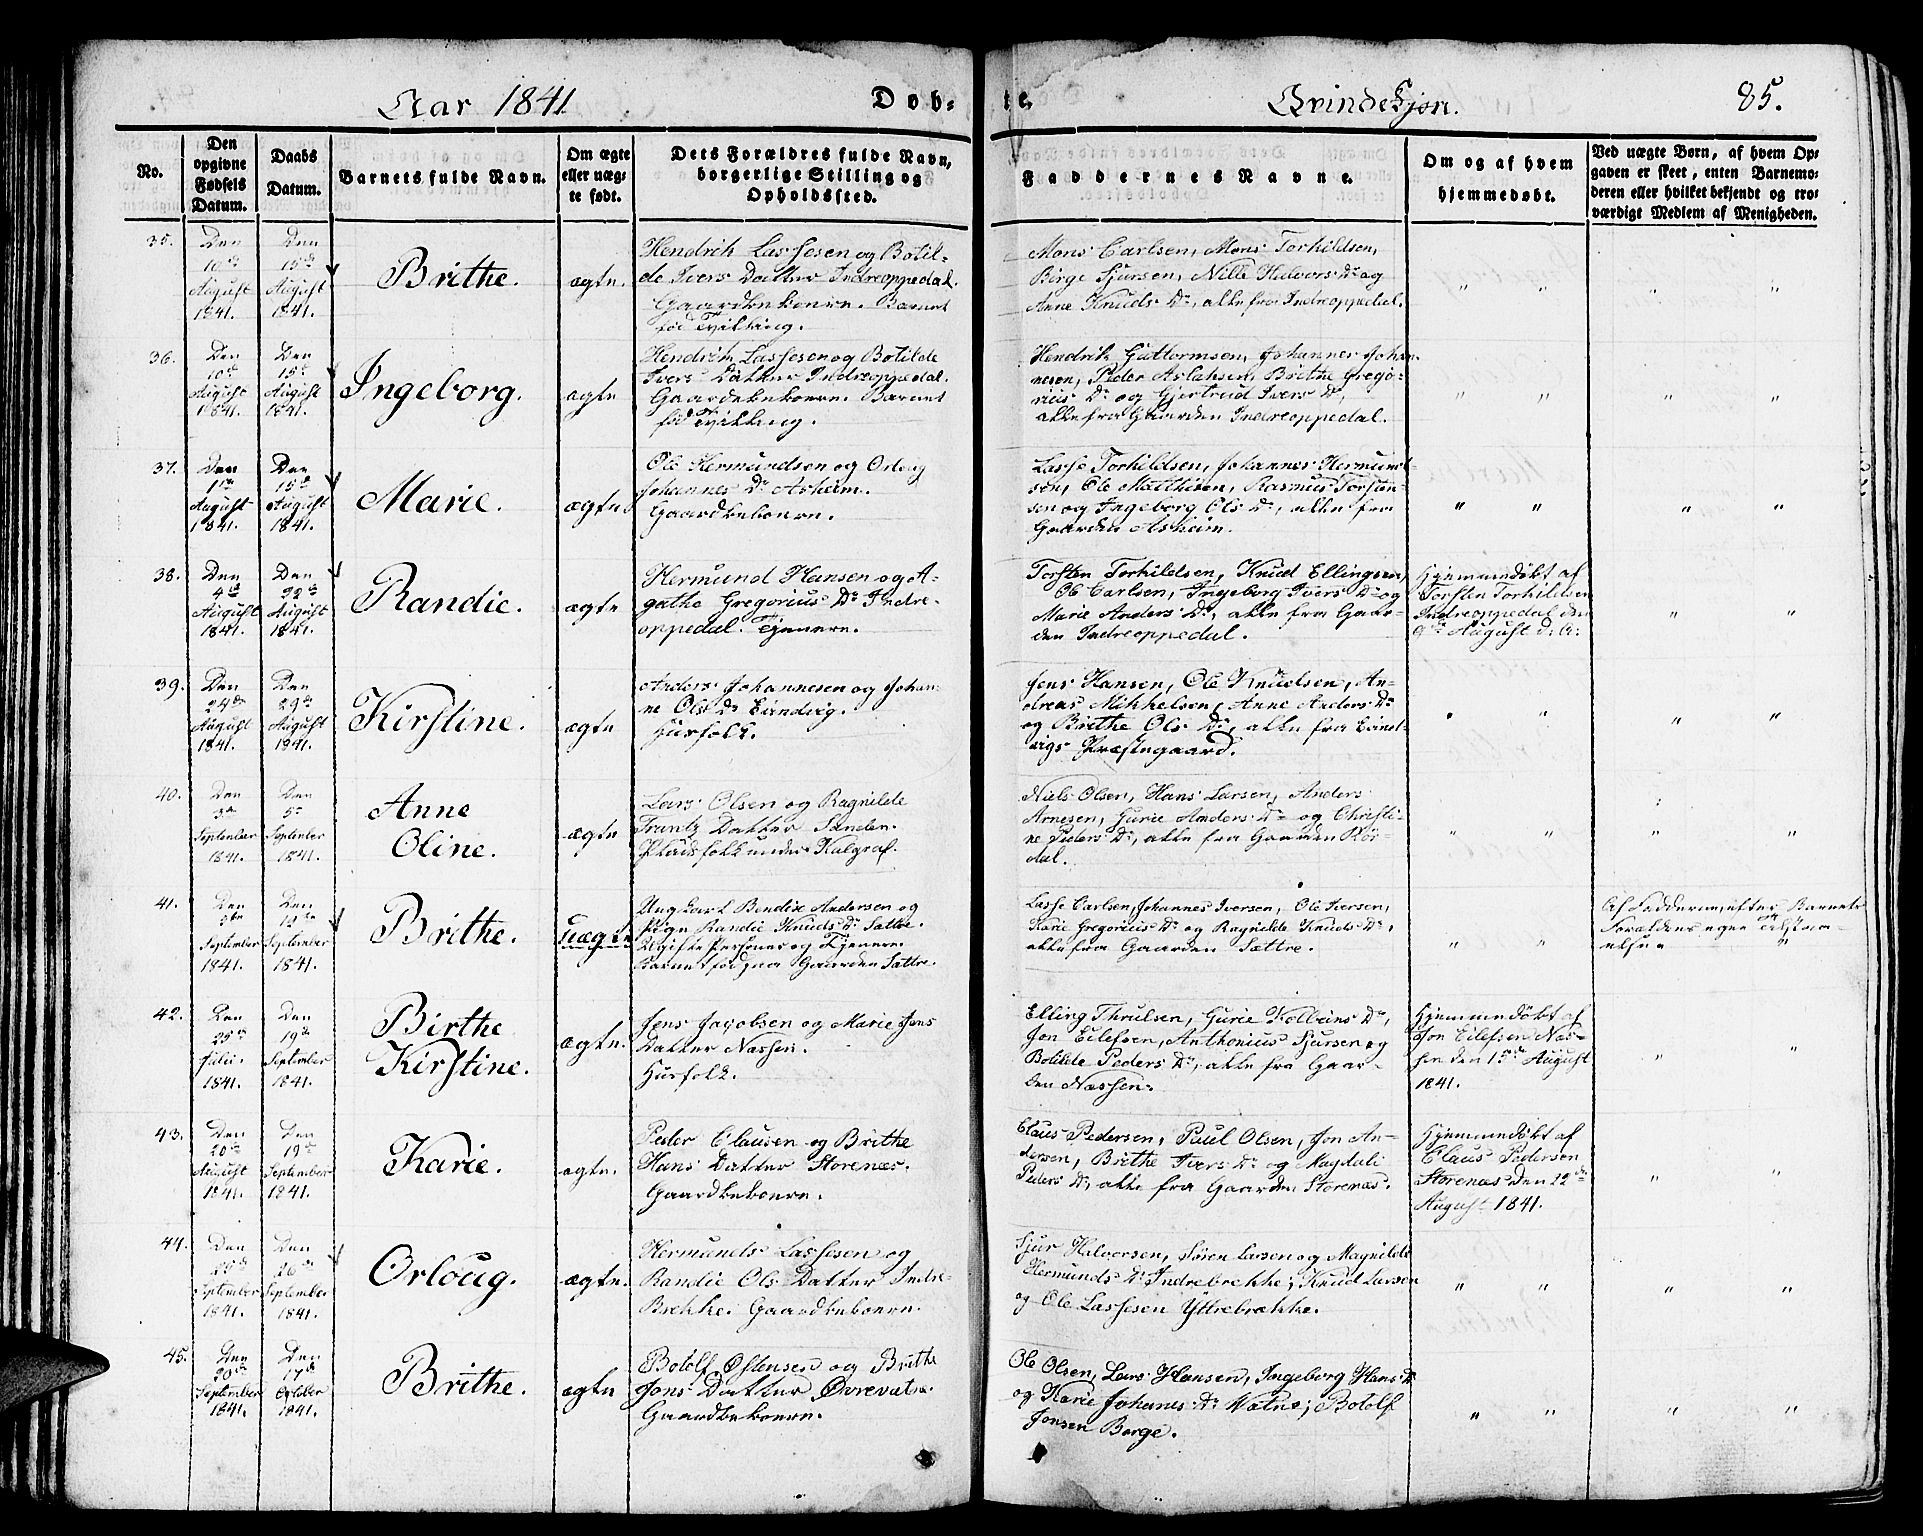 Aar 1841.
Döb-
te.
Qvindekjøn.
85.
No.
Den
opgivne
Fødsels
Datum.
Daabs
Datum.
Barnets fulde Navn.
Om ægte
eller uæg-
te født.
Dets Forældres fulde Navn,
borgerlige Stilling og
Opholdssted.
Faddernes Navne.
Om og af hvem
hjemmedøbt.
Ved uægte Børn, af hvem Op-
gaven er skeet, enten Barnemo-
deren eller hvilket bekjendt og tro-
værdigt Medlem af Menigheden.
35.
Den
10de
August
1841.
Den
15de
August
1841.
Brithe.
ægte.
Hendrik Lassesen og Botil-
de Ivers Datter Indreoppedal.
Gaardbeboere. Barnet
fød Tvilling.
Mons Carlsen, Mons Torkildsen,
Birge Sjursen, Nille Halvors Dr og
Anne Knuds Dr, alle fra Indreoppedal.
" " " "
36.
Den
10de
August
1841.
Den
15de
August
1841.
Ingeborg.
ægte
Hendrik Lassesen og Botilde
Ivers Datter Indreoppedal.
Gaardbeboere. Barnet
fød Tvilling.
Hendrik Guttormsen, Johannes Johan-
nesen, Peder Aslaksen, Brithe Grego-
rius Dr og Gjertrud Ivers Dr,
alle fra Gaarden Indreoppedal.
" " " "
37.
Den
1ste
August
1841.
Den
15de
August
1841.
Marie.
ægte.
Ole Hermundsen og Orloug
Johannes Dr Asheim.
Gaardbeboere.
Lasse Torkildsen, Johannes Hermund-
sen, Ole Mathisen, Rasmus Torsten-
sen og Ingeborg Ols Dr, alle fra
Gaarden Asheim.
" " " "
38.
Den
4de
August
1841.
Den
22de
August
1841.
Randie.
ægte
Hermund Hansen og A-
gathe Gregorius Dr Indre-
oppedal. Tjenere.
Torsten Torkildsen, Knud Ellingsen,
Ole Carlsen, Ingeborg Ivers Dr og
Marie Anders Dr, alle fra Gaar-
den Indreoppedal.
Hjemmedøbt af
Torsten Torkildsen
Indreoppedal den
9de August d. A.
" "
39.
Den
24de
August
1841.
Den
29de
August
1841.
Kirstine.
ægte
Anders Johannesen og Johan-
ne Ols Dr Eivindvig.
Huusfolk.
Jens Hansen, Ole Knudsen, An-
dreas Mikkelsen, Anne Anders Dr
og Brithe Ols Dr, alle fra Eivind-
vigs Præstegaard.
" " " "
40.
Den
3de
September
1841.
Den
5te
September
1841.
Anne
Oline.
ægte
Lars Olsen og Ragnilde
Frantz Datter Sanden.
Pladsfolk under Kalgraf.
Niels Olsen, Hans Larsen, Anders
Arnesen, Gurie Anders Dr og Christi-
ne Peders Dr, alle fra Gaarden Rør-
dal.
" " " "
41.
Den
September
1841.
Den
12te
September
1841.
Brithe.
Uægte
Ung Karl Bendix Andersen og
Pige Randie Knuds Dr Sættre.
Ugifte Personer og Tjenere.
Barnet fød paa Gaarden Sættre.
Lasse Carlsen, Johannes Iversen, Ole Iversen,
Karie Gregorius Dr og Ragnilde Knuds Dr,
alle fra Gaarden Sættre.
" "
Af Fadderne, efter Barnets
Forældres egen Tilstaa-
else
42.
Den
25de
Julii
1841.
Den
19de
September
1841.
Birthe
Kirstine.
ægte.
Jens Jacobsen og Marie Jens
Datter Næssen.
Huusfolk.
Elling Thrulsen, Gurie Kolbeins Dr,
Jon Eilefsen, Anthonius Sjursen og
Botilde Peders Dr, alle fra Gaar-
den Næssen.
Hjemmedøbt af
Jon Eilefsen Næs-
sen den 15de August
1841.
" "
43.
Den
20de
August
1841.
Den
19de
September
1841.
Karie.
ægte.
Peder Clausen og Brithe
Hans Datter Storenæs.
Gaardbeboere.
Claus Pedersen, Poul Olsen, Jon An-
dersen, Brithe Ivers Dr og Magdali
Peders Dr, alle fra Gaarden Storenæs.
Hjemmedøbt af
Claus Pedersen
Storenæs den 22de
August 1841.
" "
44.
Den
September
1841.
Den
26de
September
1841.
Orloug.
ægte.
Hermunds Lassesen og
Randie Ols Datter Indre-
Brekke. Gaardbeboere.
Sjur Halvorsen, Søren Larsen og Magnilde
Hermunds Dr Indrebrekke; Knud Larsen
og Ole Lassesen Yttrebrække.
" " " "
45.
Den
20de
September
1841.
Den
17de
October
1841.
Brithe.
ægte
Botolf Østensen og Brithe
Jons Datter Øvrevatne.
Gaardbeboere.
Ole Olsen, Lars Hansen, Ingeborg Hans Dr
og Karie Johanes Dr Watne; Botolf
Jonsen Borge.
" " " "